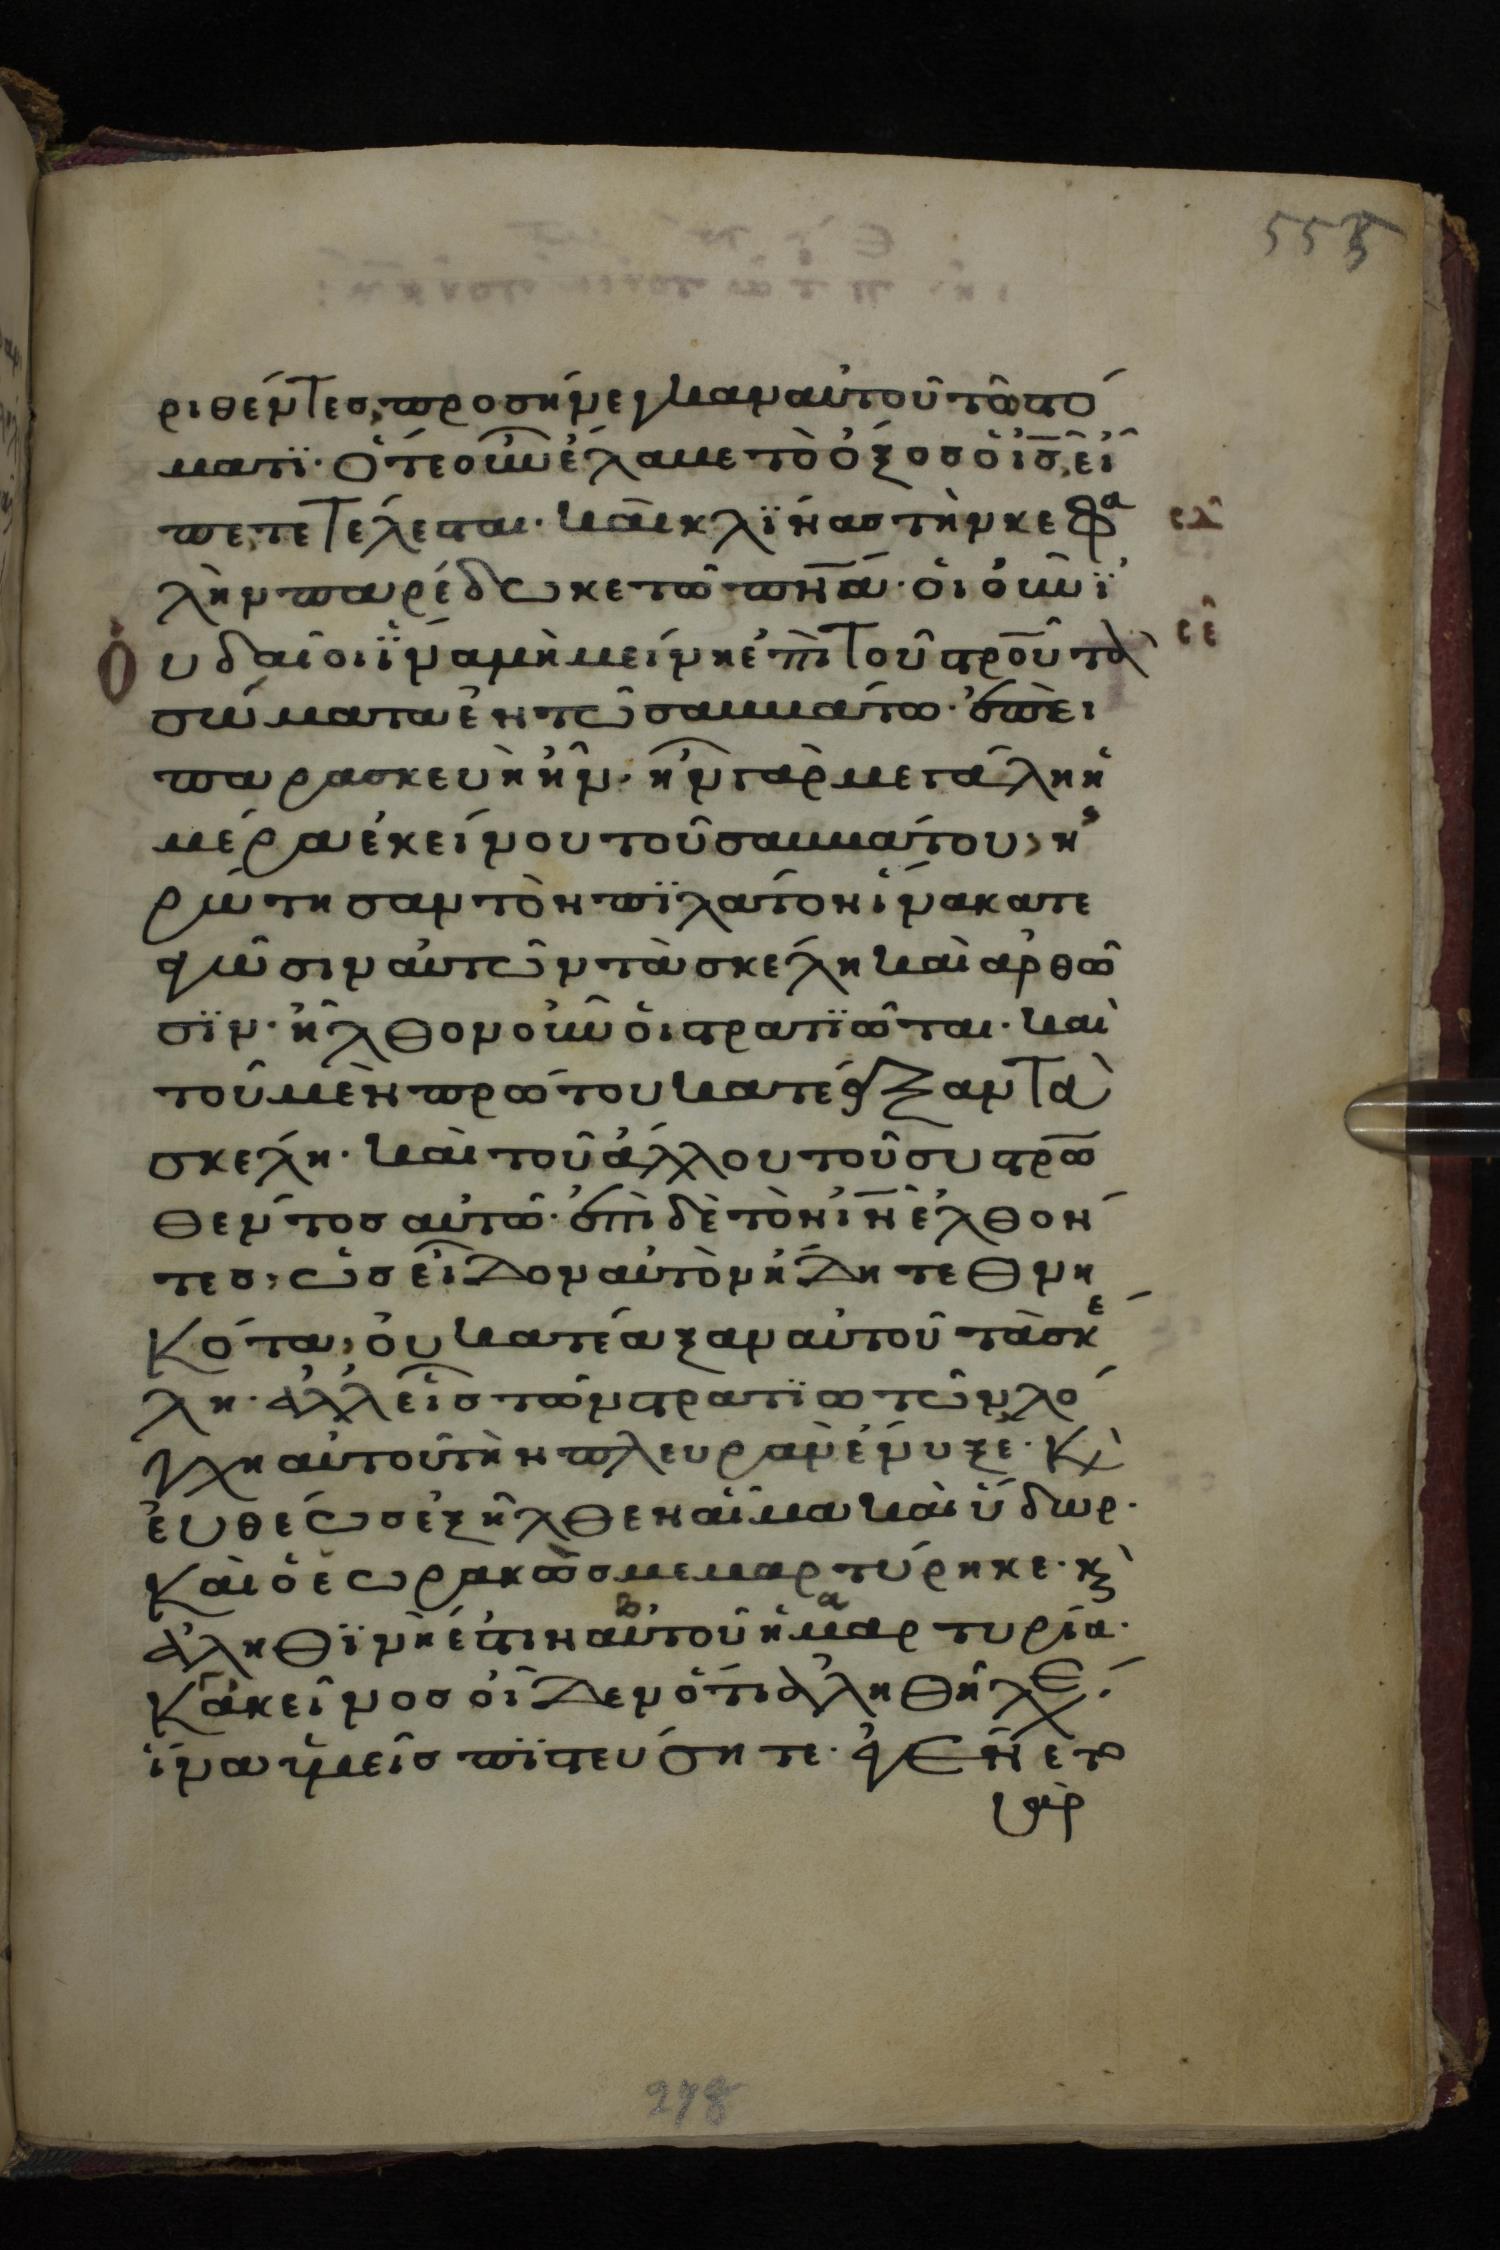 555
ριθέντες, προσήνεγκαν αὐτοῦ τῶ στό
ματϊ· ὅτε οὖν ἔλαβε τὸ ὄξος ὁ ἰ̅ς̅, εἶ
πε, τετέλεσται· καὶ κλΐνας τὴν κεφα
λὴν παρέδωκε τῶ π̅ν̅α̅· οἱ οὖν ϊ
ὁυδαῖοι ἵνα μὴ μείνη ἐπὶ τοῦ σ̅τ̅ρ̅ο̅ῦ̅ τὰ
σώματα ἐν τῶ σαββάτω· ἐπεὶ
παρασκευὴ ἦν· ἦν γὰρ μεγάλη ἡ
μέρα ἐκείνου τοῦ σαββάτου, ἠ
ρώτησαν τὸν πϊλάτον ἵνα κατε
γῶσιν αὐτῶν τὰ σκέλη καὶ ἀρθῶ
σϊν· ἦλθον οὖν ὁι στρατϊῶται· καὶ
τοῦ μὲν πρώτου κατέαξαν τὰ
σκέλη· καὶ τοῦ ἄλλου τοῦ συσ̅τ̅ρ̅ω̅
θέντος αὐτῶ· ἐπὶ δὲ τὸν ἰ̅ν̅ ἐλθόν
τες, ὡς εἶδον αὐτὸν ἤδη τεθνη
κότα, οὐ κατέαξαν αὐτοῦ τὰ σκέ
λη· ἀλλ' εἷς τῶν στρατϊωτῶν λό
γχη αὐτοῦ τὴν πλευρὰν ἔνυξε· κ̀
ἐυθέως ἐξῆλθεν αἷμα καὶ ὕδωρ·
καὶ ὁ ἑωρακὼς μεμαρτύρηκε· κ̀
ἀληθϊνὴ ἐστιν β αὐτοῦ ἡ α μαρτυρία·
κἀκεῖνος οἶδεν ὅτι ἀληθῆ λέγει·
ἵνα ὑμεῖς πϊστεύσητε· ἐγένετο
γὰρ
278